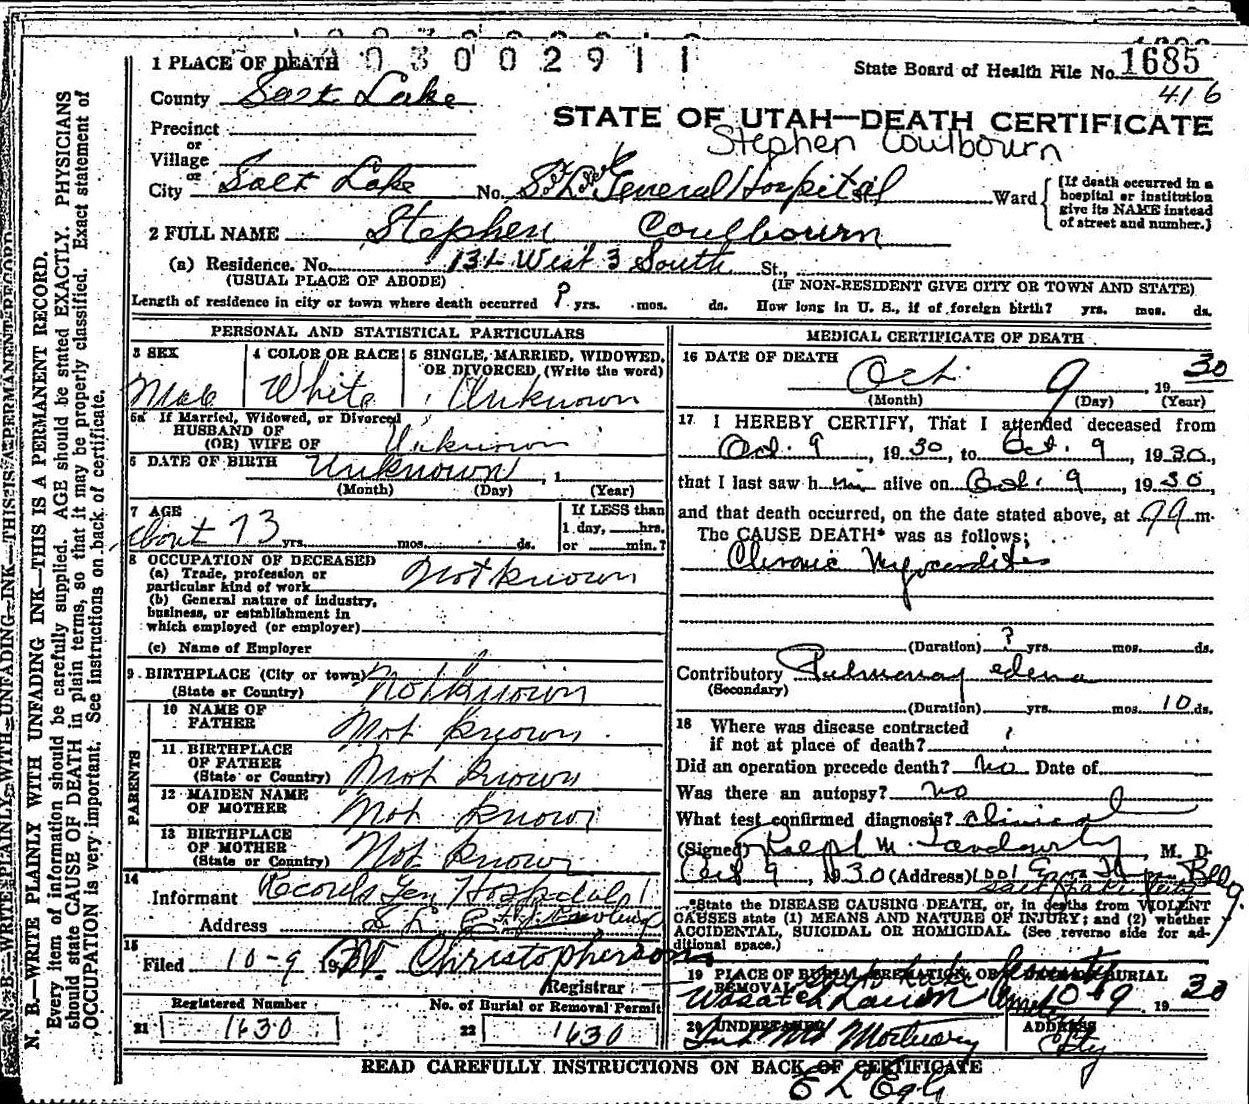 1 PLACE OF DEATH 0 3 0 0 2 9 1 1
State Board of Health File No. 1685
416
County Salt Lake
STATE OF UTAH—DEATH CERTIFICATE
Precinct
or
Village
Stephen Coulbourn
or
City Salt Lake No. General Hospital St. Ward
(If death occurred in a hospital or institution give its NAME instead of street and number.)
2 FULL NAME Stephen Coulbourn
(a) Residence. No. 131 West 3 South St.,
(USUAL PLACE OF ABODE) (IF NON-RESIDENT GIVE CITY OR TOWN AND STATE)
Length of residence in city or town where death occurred ? yrs. mos. ds. How long in U. S., if of foreign birth? yrs. mos. ds.
PERSONAL AND STATISTICAL PARTICULARS
3 SEX
Male
4 COLOR OR RACE
White
5 SINGLE, MARRIED, WIDOWED, OR DIVORCED, (Write the word)
Unknown
5a If Married, Widowed, or Divorced
HUSBAND OF
(OR) WIFE OF Unknown
6 DATE OF BIRTH Unknown, 1
(Month) (Day) (Year)
7 AGE
About 73 yrs. mos. ds.
If LESS than
1 day, hrs.
or min.?
8 OCCUPATION OF DECEASED
(a) Trade, profession or
particular kind of work Not known
(b) General nature of industry,
business, or establishment in
which employed (or employer)
(c) Name of Employer
9 BIRTHPLACE (City or town)
(State or Country) Not known
PARENTS
10 NAME OF
FATHER Not known
11 BIRTHPLACE
OF FATHER
(State or Country) Not known
12 MAIDEN NAME
OF MOTHER Not known
13 BIRTHPLACE
OF MOTHER
(State or Country) Not known
14
Informant Records Gen Hospital
Address S L
15
Filed 10-9 19 Christopherson
Registrar
Registered Number
21 1630
No. of Burial or Removal Permit
22 1630
MEDICAL CERTIFICATE OF DEATH
16 DATE OF DEATH
Oct. 9, 19 30
(Month) (Day) (Year)
17 I HEREBY CERTIFY, That I attended deceased from
Oct. 9, 1930, to Oct. 9, 1930,
that I last saw him alive on Oct. 9, 1930,
and that death occurred, on the date stated above, at m.
The CAUSE DEATH* was as follows;
Chronic Myocarditis
(Duration) ? yrs. mos. ds.
Contributory Pulmonary edema
(Secondary)
(Duration) yrs. mos. 10 ds.
18 Where was disease contracted
if not at place of death? ?
Did an operation precede death? No Date of
Was there an autopsy? no
What test confirmed diagnosis? clinical
(Signed) Ralph M. M. D.
Oct 9, 1930 (Address) 1001 Bldg.
Salt Lake City
*State the DISEASE CAUSING DEATH, or, in deaths from VIOLENT
CAUSES state (1) MEANS AND NATURE OF INJURY; and (2) whether
ACCIDENTAL, SUICIDAL OR HOMICIDAL. (See reverse side for ad-
ditional space.)
19 PLACE OF BURIAL, CREMATION, OR REMOVAL DATE OF BURIAL
Salt Lake County
Wasatch Lawn Cemetery 10-9 19 30
20 UNDERTAKER ADDRESS
Mortuary City
READ CAREFULLY INSTRUCTIONS ON BACK OF CERTIFICATE
N. B.—WRITE PLAINLY WITH UNFADING INK—THIS IS A PERMANENT RECORD.
N. B.—WRITE PLAINLY WITH UNFADING INK—THIS IS A PERMANENT RECORD.
Every item of information should be carefully supplied. AGE should be stated EXACTLY. PHYSICIANS
should state CAUSE OF DEATH in plain terms, so that it may be properly classified. Exact statement of
OCCUPATION is very important. See instructions on back of certificate.